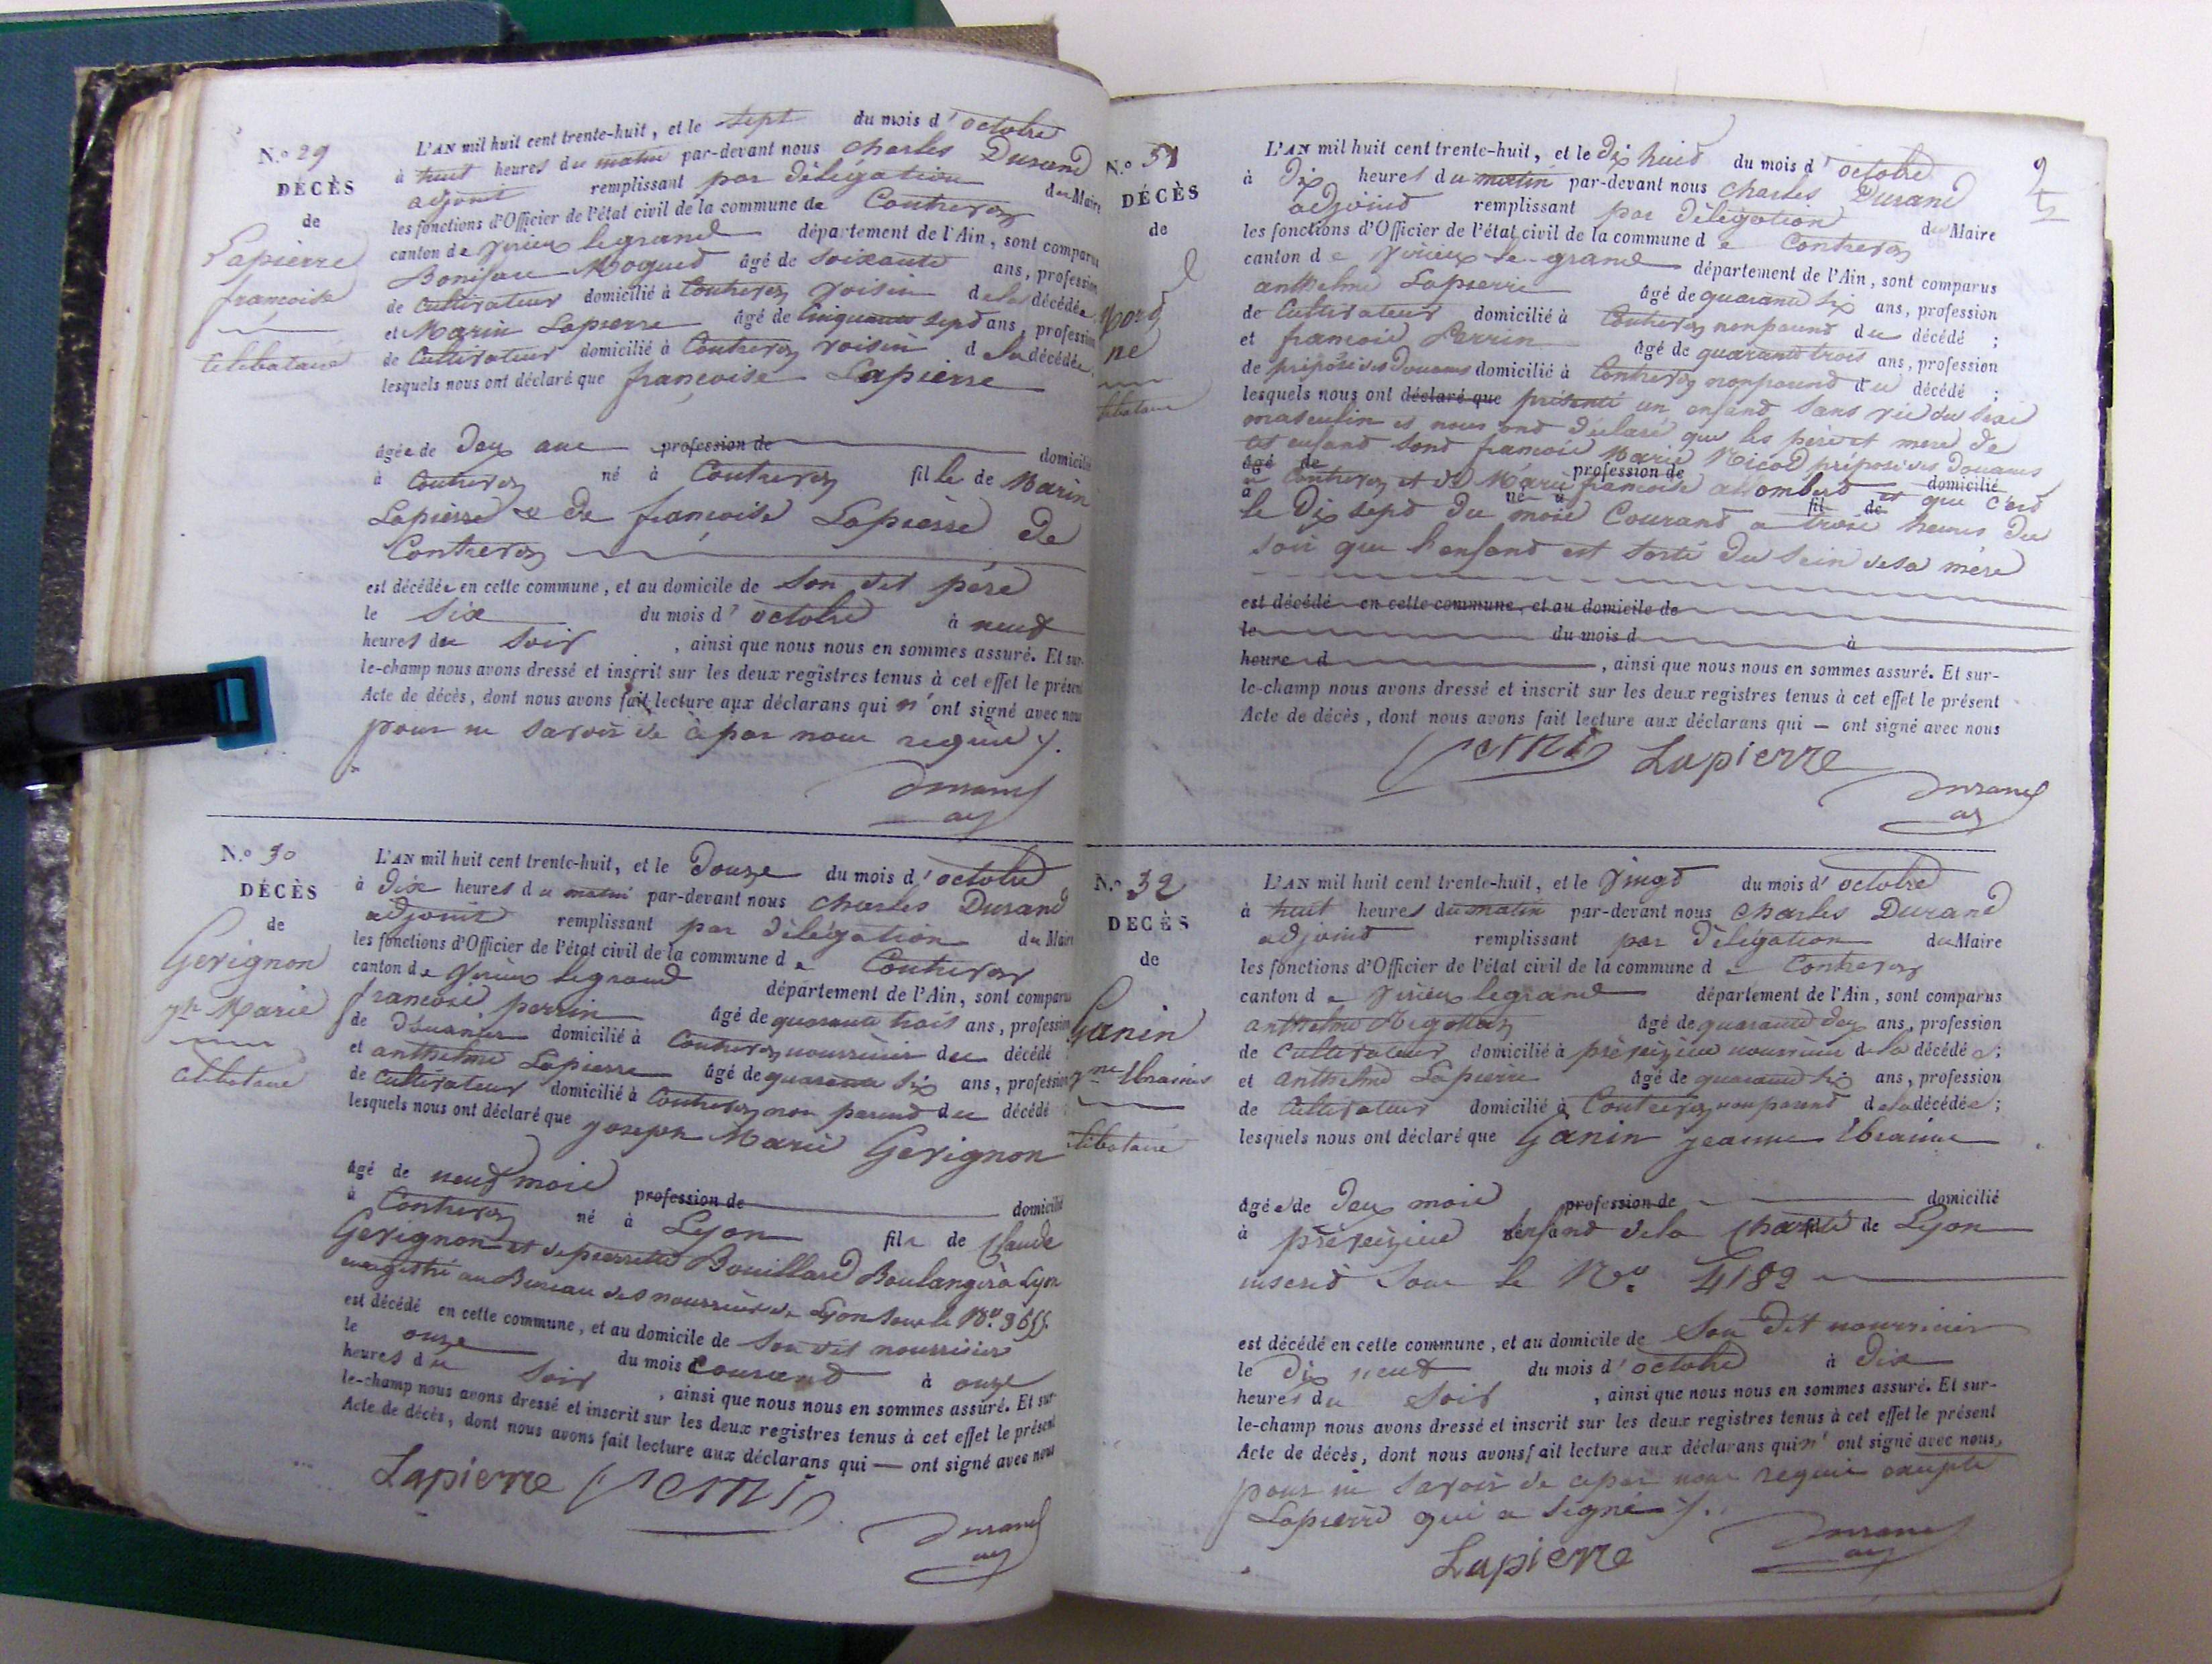 N.º 29
DÉCÈS
de
Lapierre
françoise
celibataire
L'AN mil huit cent trente-huit, et le sept du mois d'octobre
à huit heures du matin par-devant nous Charles Durand
adjoint remplissant par délégation du Maire
les fonctions d'Officier de l'état civil de la commune de Contrevoz
canton de Virieux legrand département de l'Ain, sont comparus
Boniface Moquet âgé de soixante ans, profession
de Cultivateur domicilié à Contrevoz voisin de la décédée
et Marin Lapierre âgé de Cinquante sept ans, profession
de Cultivateur domicilié à Contrevoz voisin de la décédée
lesquels nous ont déclaré que françoise Lapierre
âgée de Deux ans profession de domicilié
à Contrevoz né à Contrevoz fille de Marin
Lapierre & de françoise Lapierre de
Contrevoz
est décédée en cette commune, et au domicile de son dit père
le Six du mois d'octobre à neuf
heures du soir, ainsi que nous nous en sommes assuré. Et sur-
le-champ nous avons dressé et inscrit sur les deux registres tenus à cet effet le présent
Acte de décès, dont nous avons fait lecture aux déclarans qui n'ont signé avec nous
pour ne savoir de ce par nous requis
Durand
adj
N.º 30
DÉCÈS
de
Gerignon
jh Marie
celibataire
L'AN mil huit cent trente-huit, et le Douze du mois d'octobre
à Dix heures du matin par-devant nous Charles Durand
adjoint remplissant par délégation du Maire
les fonctions d'Officier de l'état civil de la commune de Contrevoz
canton de Virieux legrand département de l'Ain, sont comparus
françois perrin âgé de quarante trois ans, profession
de Douanier domicilié à Contrevoz nourricier du décédé
et anthelme Lapierre âgé de quarante six ans, profession
de Cultivateur domicilié à Contrevoz non parent du décédé
lesquels nous ont déclaré que joseph Marie Gerignon
âgé de neuf mois profession de domicilié
à Contrevoz né à Lyon fils de Claude
Gerignon et de pierrette Bouillard Boulanger à Lyon
enregistré au Bureau des nourrices de Lyon sous le No.
est décédé en cette commune, et au domicile de son dit nourricier
le onze du mois courant à onze
heures du soir, ainsi que nous nous en sommes assuré. Et sur-
le-champ nous avons dressé et inscrit sur les deux registres tenus à cet effet le présent
Acte de décès, dont nous avons fait lecture aux déclarans qui — ont signé avec nous
Lapierre
Durand
adj
N.º 31
DÉCÈS
de
Mort
né
celibataire
L'AN mil huit cent trente-huit, et le Dix huit du mois d'octobre
à Dix heures du matin par-devant nous Charles Durand
adjoint remplissant par délégation du Maire
les fonctions d'Officier de l'état civil de la commune de Contrevoz
canton de Virieux-le-grand département de l'Ain, sont comparus
anthelme Lapierre âgé de quarante six ans, profession
de Cultivateur domicilié à Contrevoz non parent du décédé ;
et françois Perrin âgé de quarante trois ans, profession
de préposé des Douanes domicilié à Contrevoz non parent du décédé ;
lesquels nous ont déclaré que présenté un enfant sans vie du sexe
masculin et nous ont déclaré que les père et mere de
cet enfant sont françois Marie Nicod préposé des Douanes
âgé de profession de domicilié
à Contrevoz et de Marie françoise allombert et que c'est
à né à fil de
le Dix sept du mois Courant a trois heures du
soir que l'enfant est sorti du sein de sa mère
est décédé en cette commune, et au domicile de
le du mois d à
heure d , ainsi que nous nous en sommes assuré. Et sur-
le-champ nous avons dressé et inscrit sur les deux registres tenus à cet effet le présent
Acte de décès, dont nous avons fait lecture aux déclarans qui — ont signé avec nous
Lapierre
Durand
adj
N.º 32
DÉCÈS
de
Ganin
celibataire
L'AN mil huit cent trente-huit, et le Vingt du mois d'octobre
à huit heures du matin par-devant nous Charles Durand
adjoint remplissant par délégation du Maire
les fonctions d'Officier de l'état civil de la commune de Contrevoz
canton de Virieux legrand département de l'Ain, sont comparus
anthelme âgé de quarante Deux ans, profession
de Cultivateur domicilié à nourricier de la décédée ;
et anthelme Lapierre âgé de quarante six ans, profession
de Cultivateur domicilié à Contrevoz non parent de la décédée ;
lesquels nous ont déclaré que Ganin jeanne
âgée de Deux mois profession de domicilié
à enfant de la Charité de Lyon
inscrit sous le No. 4182
est décédé en cette commune, et au domicile de son Dit nourricier
le Dix neuf du mois d'octobre à Dix
heures du soir, ainsi que nous nous en sommes assuré. Et sur-
le-champ nous avons dressé et inscrit sur les deux registres tenus à cet effet le présent
Acte de décès, dont nous avons fait lecture aux déclarans qui n'ont signé avec nous,
pour ne savoir de ce par nous requis excepté
Lapierre qui a signé
Lapierre
Durand
adj